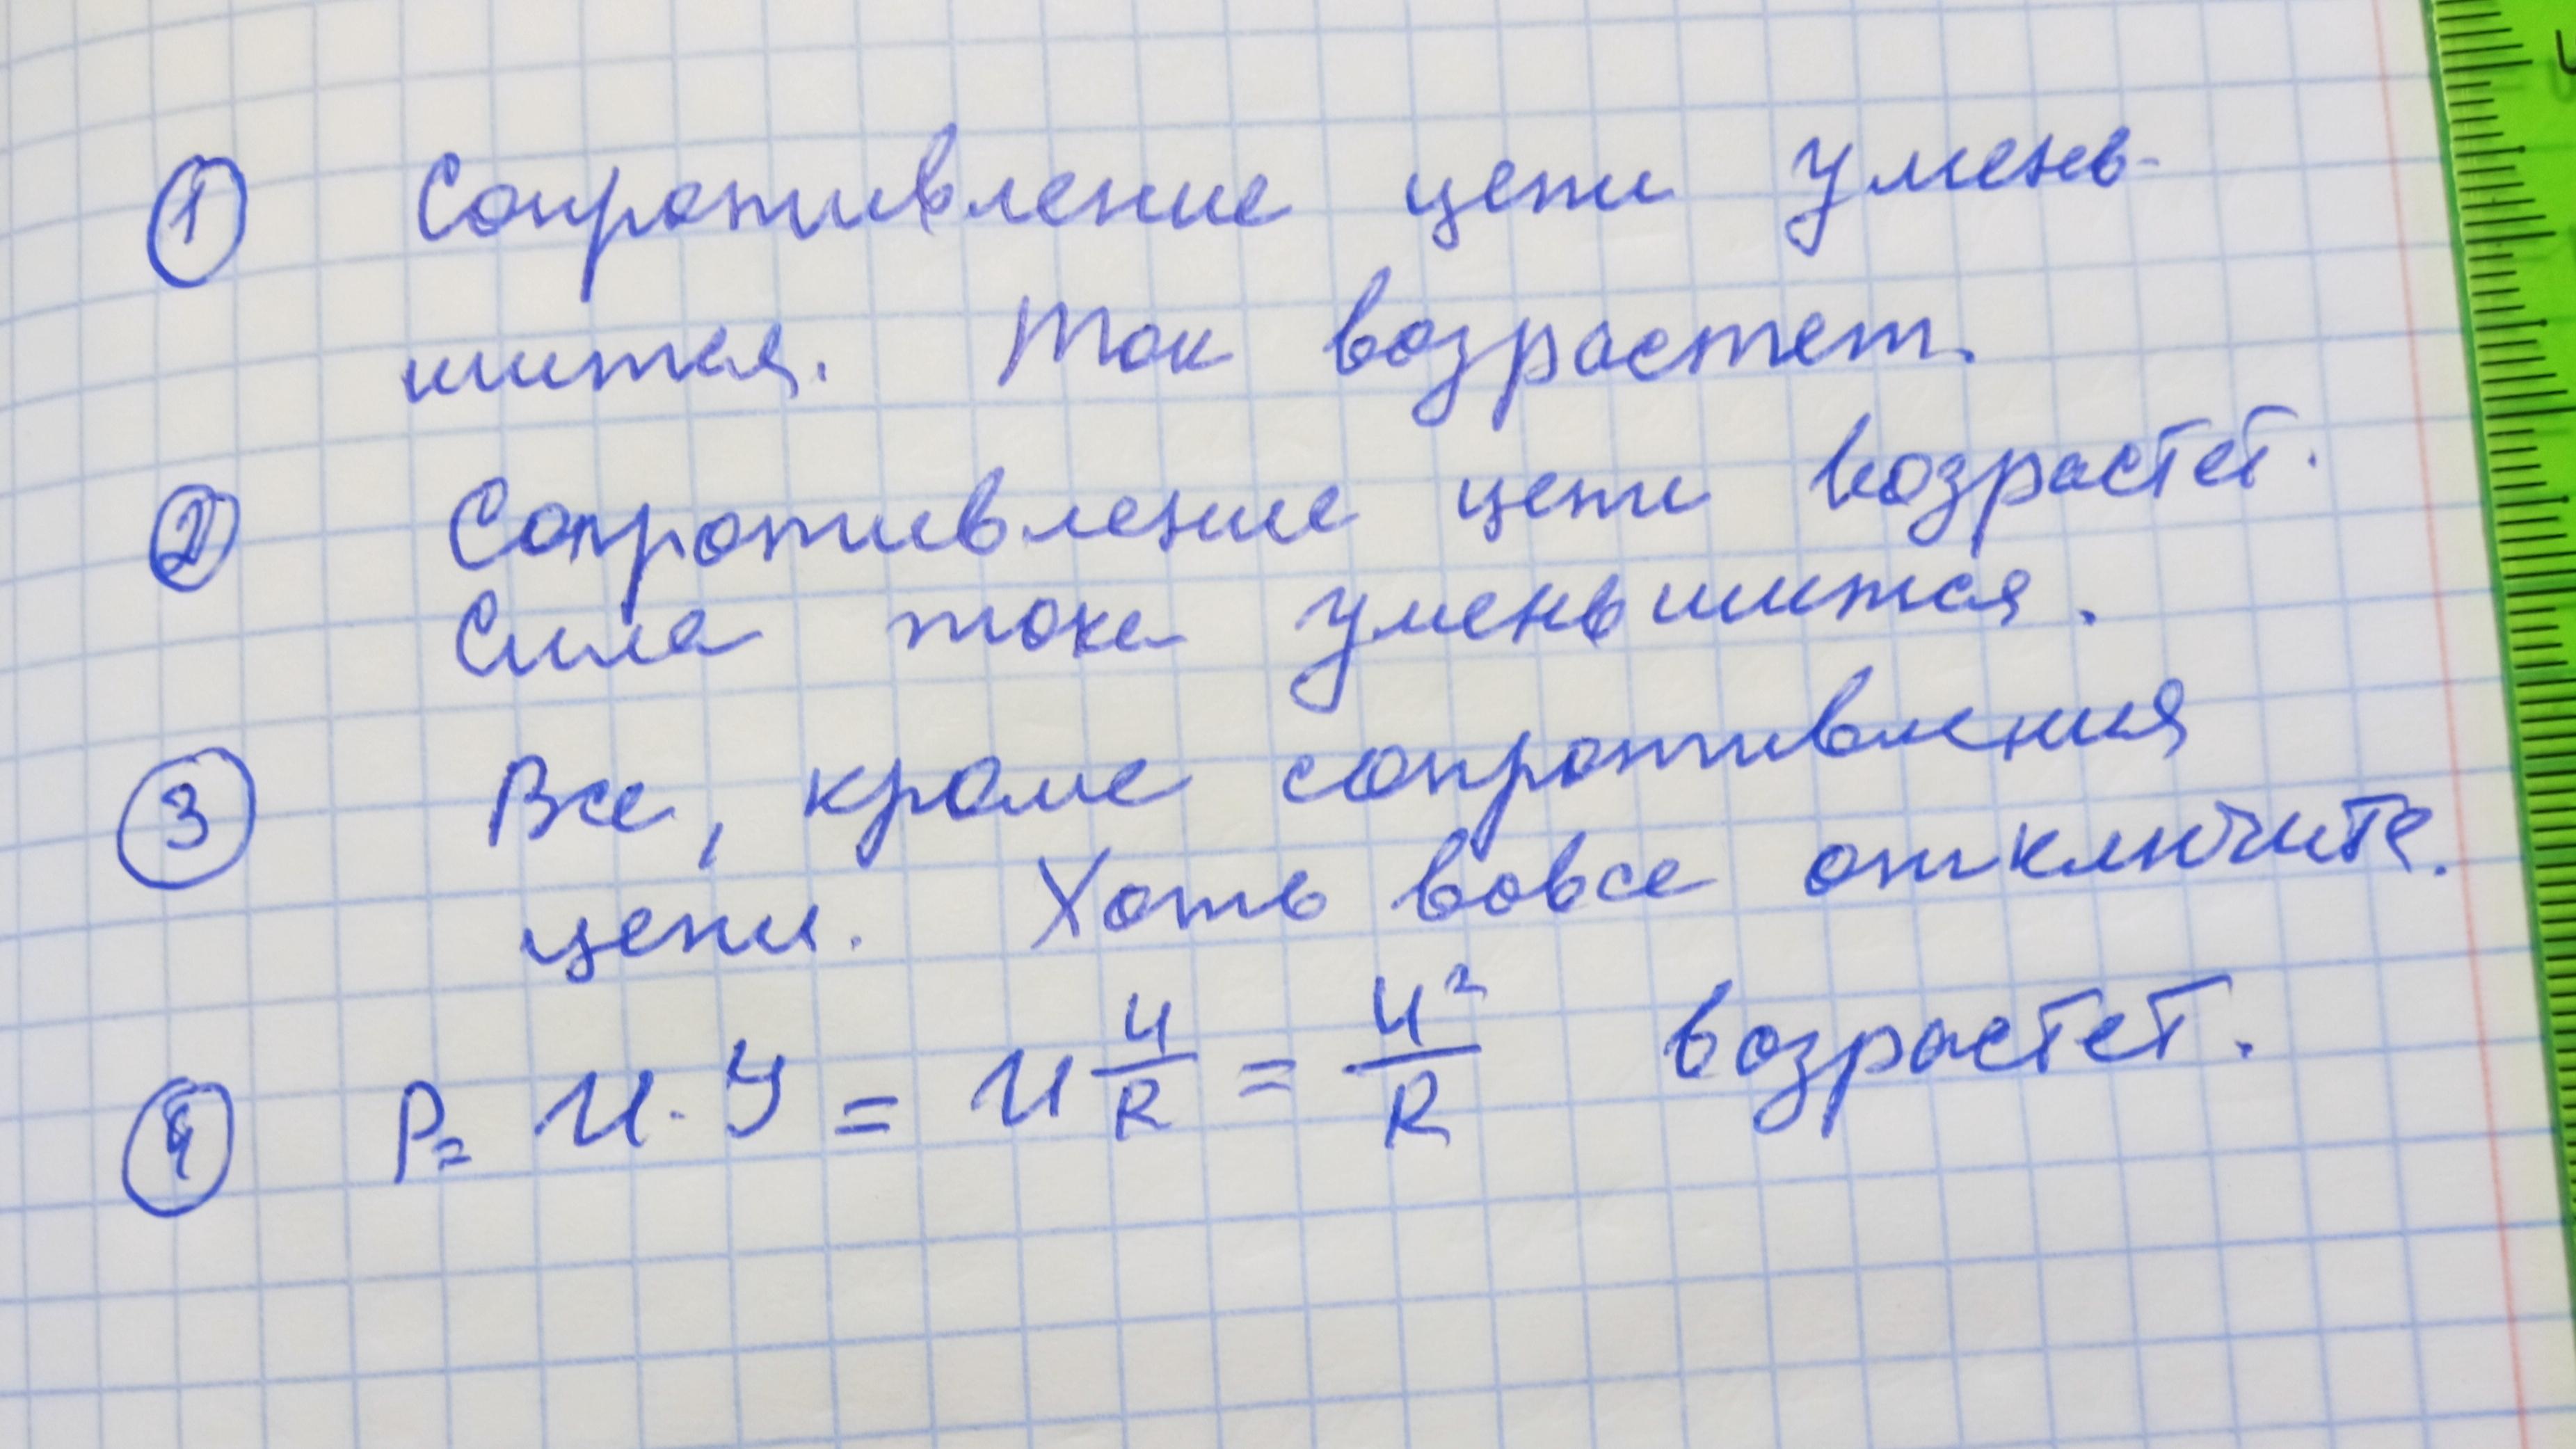 ① Сопротивление цепи умень-
шится. Ток возрастет.
② Сопротивление цепи возрастет.
Сила тока уменьшится.
③ Все, кроме сопротивления
цепи. Хоть вовсе отключите.
④ P = U · I = U U/R = U²/R возрастет.